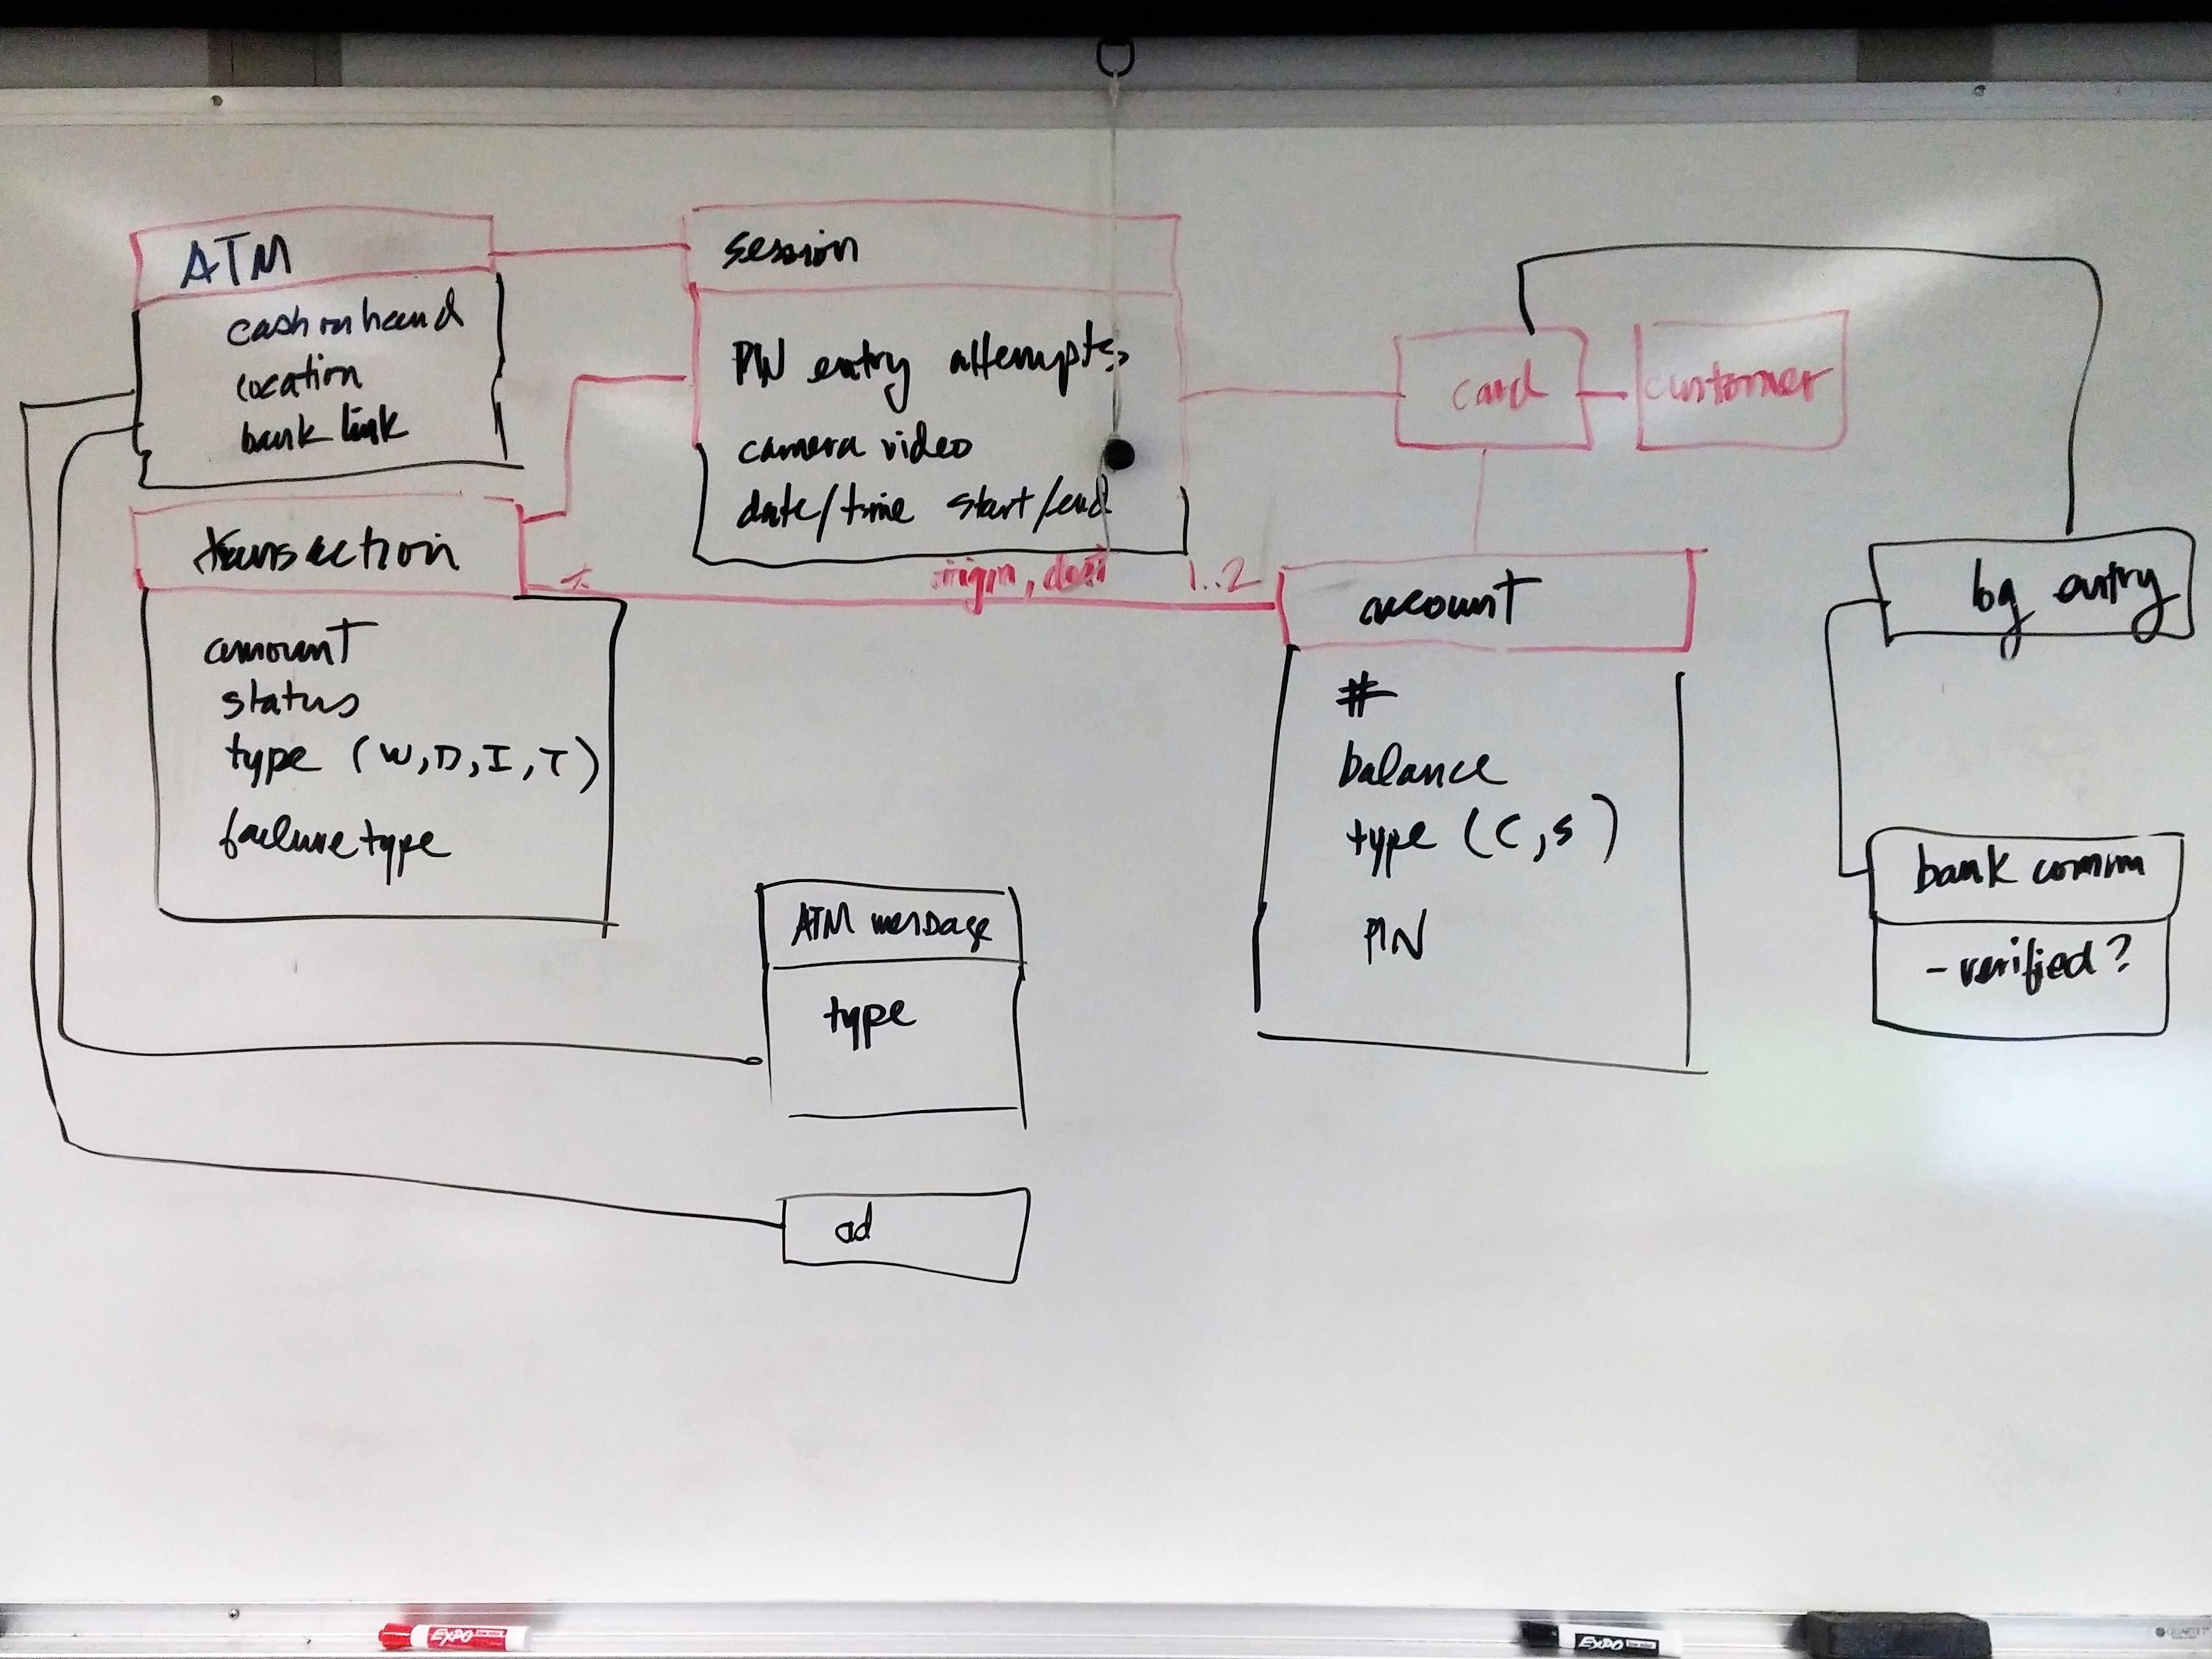 ATM
cash on hand
location
bank link
session
PIN entry attempts
camera video
date/time start/end
card
customer
transaction
amount
status
type (W, D, I, T)
failure type
*
origin, dest
1..2
account
#
balance
type (C, S)
PIN
log entry
bank comm
- verified?
ATM message
type
ad
EXPO
EXPO
QUARTET